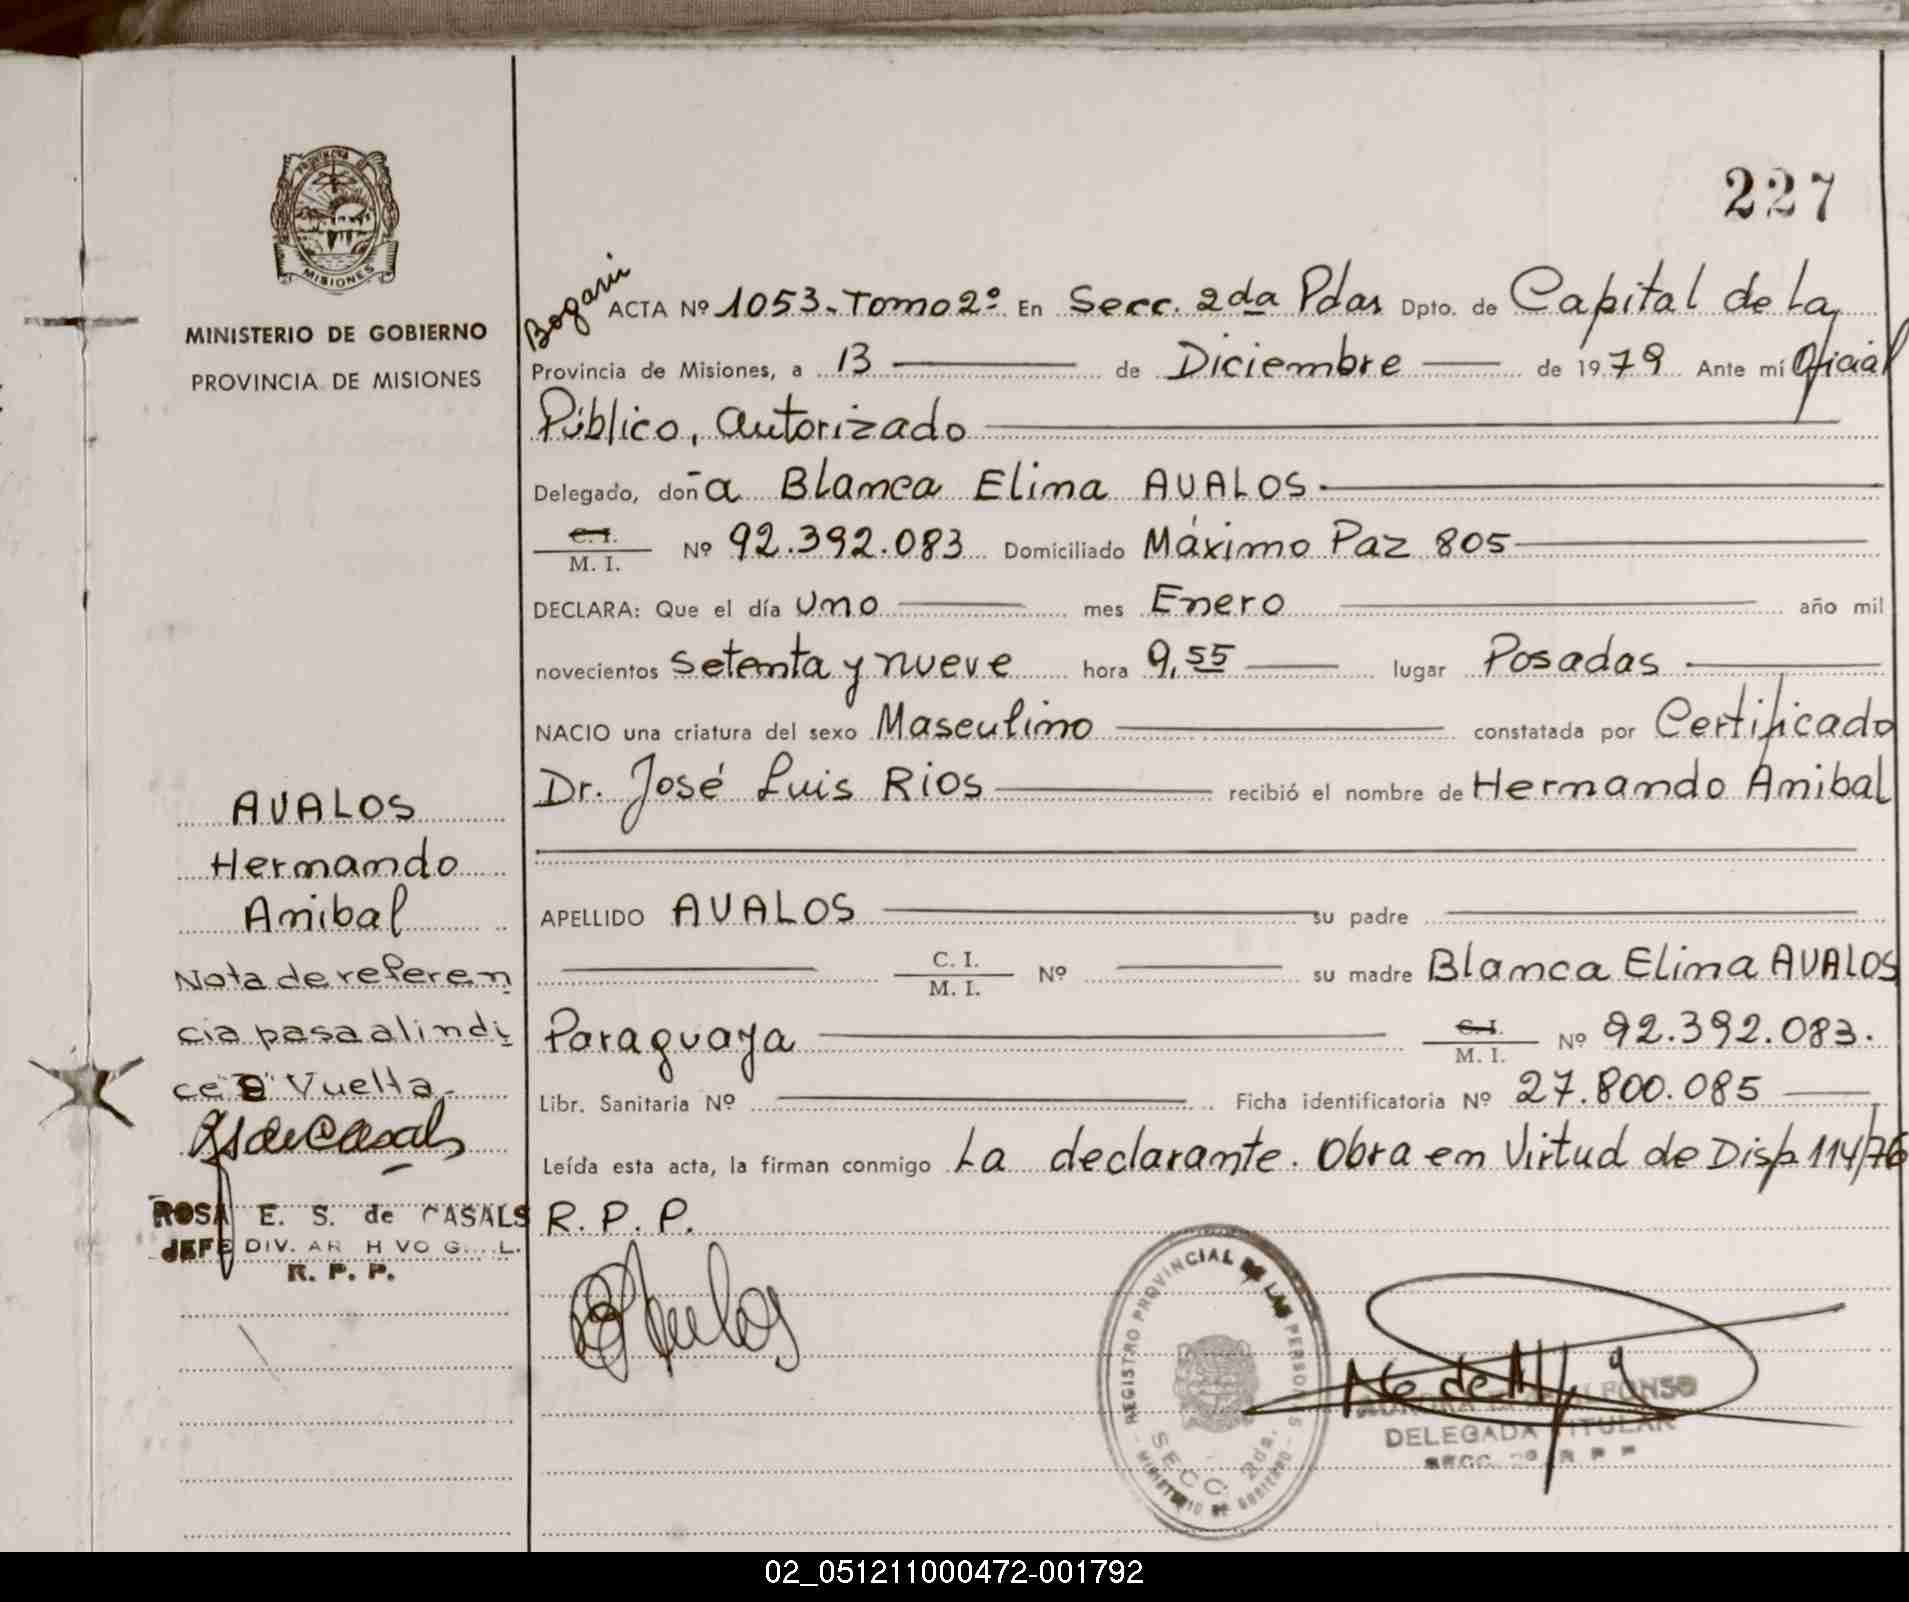 227
PROVINCIA DE
MISIONES
MINISTERIO DE GOBIERNO
PROVINCIA DE MISIONES
Bogarin
ACTA Nº 1053. Tomo 2º En Secc. 2da Pdas Dpto. de Capital de La
Provincia de Misiones, a 13 de Diciembre de 1979 Ante mí Oficial
Público, autorizado
Delegado, doña Blanca Elima AVALOS
C. I.
M. I. Nº 92.392.083 Domiciliado Máximo Paz 805
DECLARA: Que el día uno mes Enero año mil
novecientos setenta y nueve hora 9,55 lugar Posadas
NACIO una criatura del sexo Masculino constatada por Certificado
Dr. José Luis RIOS recibió el nombre de Hernando Anibal
APELLIDO AVALOS su padre
C. I.
M. I. Nº su madre Blanca Elima AVALOS
Paraguaya C. I.
M. I. Nº 92.392.083.
Libr. Sanitaria Nº Ficha identificatoria Nº 27.800.085
Leída esta acta, la firman conmigo La declarante. Obra en Virtud de Disp 114/76
R. P. P.
AVALOS
Hernando
Anibal
Nota de referen
cia pasa al indi
ce Vuelta.
ROSA E. S. de CASALS
JEFE DIV. AR H VO G L.
R. P. P.
REGISTRO PROVINCIAL DE LAS PERSONAS
SECC. 2da.
MINISTERIO DE GOBIERNO
DELEGADA TITULAR
02_051211000472-001792